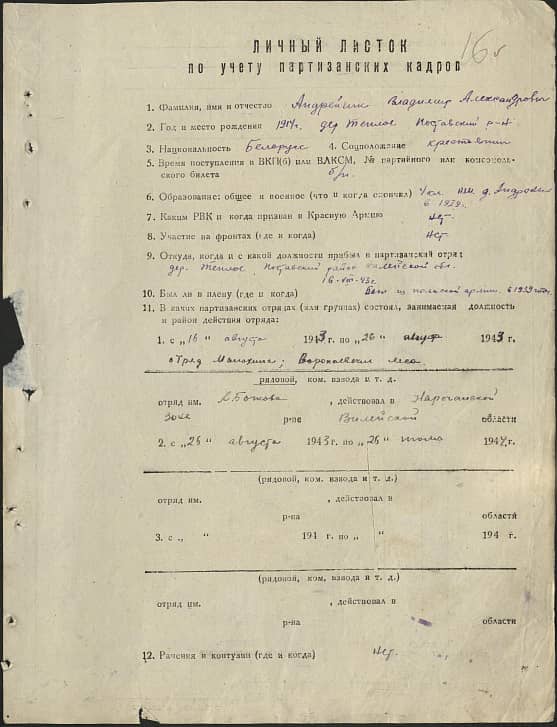 16
ЛИЧНЫЙ ЛИСТОК
по учету партизанских кадров
1. Фамилия, имя и отчество Андрейчик Владимир Александрович
2. Год и место рождения 1914г. дер Теплое Поставский р-н
3. Национальность Белорус 4. Соцположение крестьянин
5. Время поступления в ВКП(б) или ВЛКСМ, № партийного или комсомоль-
ского билета б/п.
6. Образование: общее и военное (что и когда окончил) 4 кл. д.
в 1929г.
7. Каким РВК и когда призван в Красную Армию нет.
8. Участие на фронтах (где и когда) нет
9. Откуда, когда и с какой должности прибыл в партизанский отряд
дер. Теплое, Поставский район Вилейской обл.
16-VIII-43г.
10. Был ли в плену (где и когда) из польской армии в 1939 году
11. В каких партизанских отрядах (или группах) состоял, занимаемая должность
и район действия отряда:
1. с „16" августа 1943 г. по „26" август 1943 г.
отряд Малохина; леса
(рядовой, ком. взвода и т. д.
отряд им. , действовал в Нарочанской
зоне р-не Вилейской области
2. с „26" августа 1943 г. по „26" 1944 г.
(рядовой, ком. взвода и т. д.)
отряд им. , действовал в
р-на области
3. с „ " 194 г. по „ " 194 г.
(рядовой, ком. взвода и т. д.)
отряд им. , действовал в
р-на области
12. Ранения и контузии (где и когда) нет.